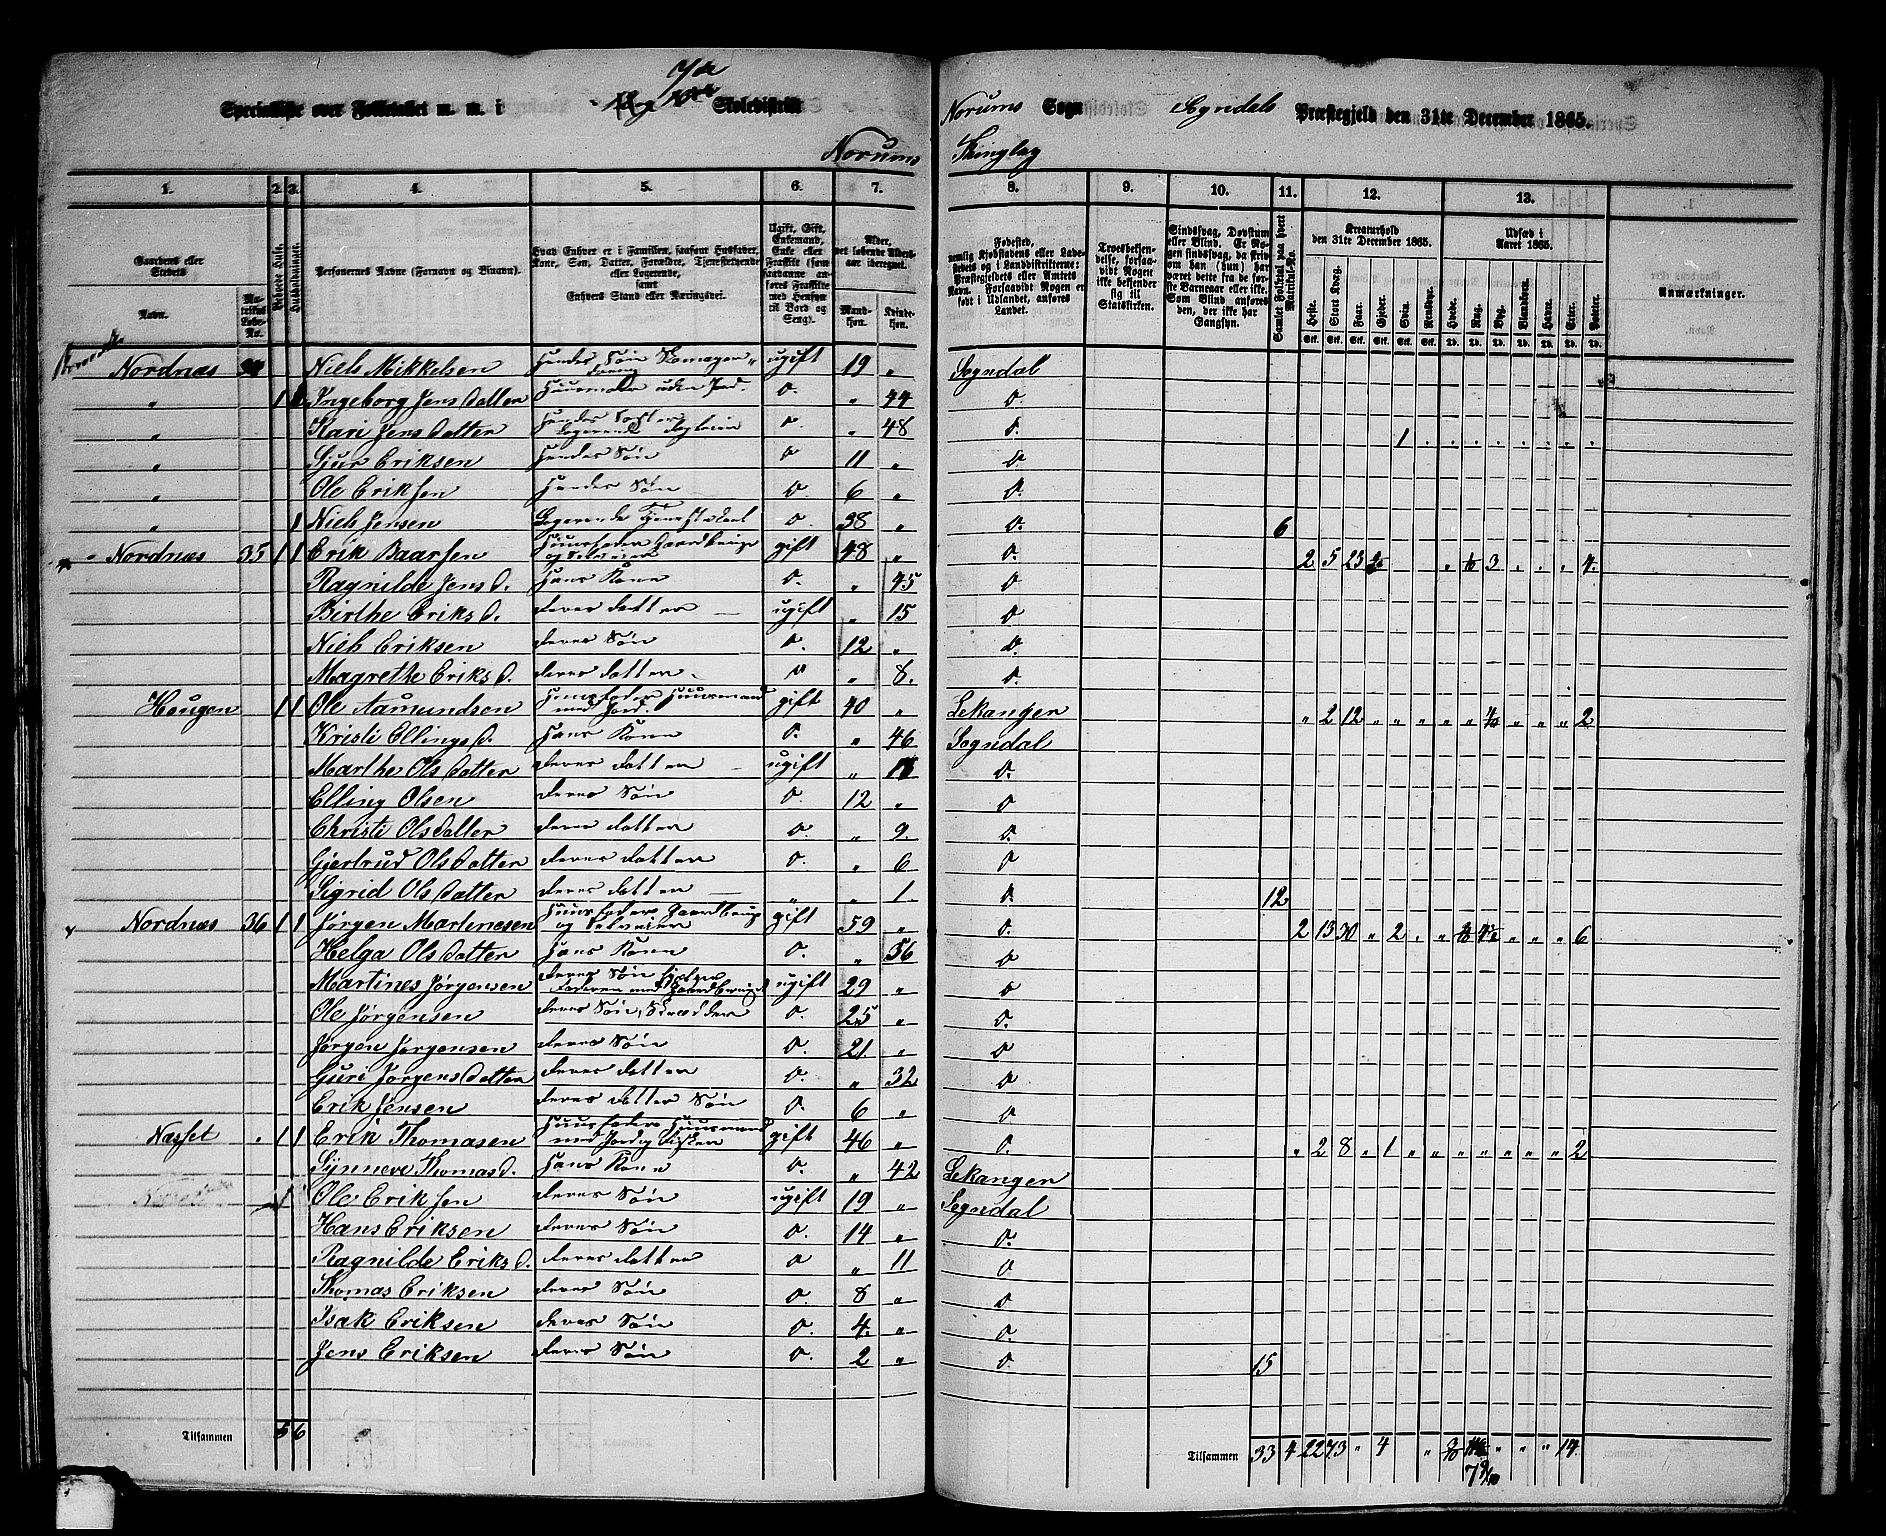 Specialliste over Folketallet m. m. i Skoledistrikt Norums Sogn Sogndals Præstegjeld den 31te December 1865.
Norums Thinglag
1. 2. 3. 4. 5. 6. 7. 8. 9. 10. 11. 12. 13.
Gaardens eller Stedets Navn. Matrikul Løbe-No. Beboede Huse. Husholdninger. Personernes Navne (Fornavn og Tilnavn). Hvad Enhver er i Familien, saasom Husfader, Kone, Søn, Datter, Forældre, Tjenestetyende eller Logerende, samt Enhvers Stand eller Næringsvei. Alder, det løbende Aldersaar iberegnet. Mandkjøn. Kvindekjøn. Samlet Folketal paa hvert Matrikul-No. Kreaturhold den 31te December 1865. Heste. Stort Kvæg. Faar. Gjeder. Svin. Rensdyr. Udsæd i Aaret 1865. Hvede. Rug. Byg. Blandkorn. Havre. Erter. Poteter. Anmærkninger.
Nordnæs Niels Mikkelsen ugift 19 " Sogndal
" 1 Ingeborg Jensdatter o. " 44 o
" Kari Jensdatter o " 48 o. 1
" Gjur Eriksen hendes Søn o 11 " o
" Ole Eriksen hendes Søn o. 6 " o.
" 1 Niels Jensen o. 38 " o. 6
Nordnæs 35 1 1 Erik Baarsen Huusfader Gaardbruger og Selveier gift 48 " o. 2 5 23 3 4.
Ragnilde Jensd. hans Kone o. " 45 o.
Birthe Eriksd. deres datter ugift " 15 o
Niels Eriksen deres Søn o. 12 " o.
Magrethe Eriksd. deres datter o " 8. o.
Haugen 1 1 Ole Aamundsen Huusfader Huusmand med Jord. gift 40 " Lekanger " 2 12 " " " " " " " " 2
Kristi Ellingsd. hans Kone o. " 46 Sogndal
Marthe Olsdatter deres datter ugift " o.
Elling Olsen deres Søn o. 12 " o
Christi Olsdatter deres datter o. " 9. o.
Gjertrud Olsdatter deres datter o. " 6 o
Sigrid Olsdatter deres datter " " 1. o. 12
Nordnæs 36 1 1 Jørgen Martinesen Huusfader Gaardbruger og Selveier gift 59 " o. 2 13 30 " 2 " " " " 6
Helga Olsdatter hans Kone o. " 56 o
Martines Jørgensen deres Søn hjelper Faderen med Gaardbruget ugift 29 " o
Ole Jørgensen deres Søn, Skrædder o. 25 " o.
Jørgen Jørgensen deres Søn o. 21 " o
Guri Jørgensdatter deres datter o. " 32 o
Erik Jensen deres datter Søn o. 6 " o
Næsset " 1 1 Erik Thomasen Huusfader Huusmand med Jord og Fisker gift 46 " o. " 2 8 " 1 " " " " " " " 2
Synneve Thomasd. hans Kone o. " 42 Lekanger
Ole Eriksen deres Søn ugift 19 " Sogndal
Hans Eriksen deres Søn o. 14 " o.
Ragnilde Eriksd. deres datter o " 11 o
Thomas Eriksen deres Søn o. 8 " o
Isak Eriksen deres Søn o. 4. " o.
Jens Eriksen deres Søn o. 2 " o 15
Tilsammen 5 6 Tilsammen 33 4 22 73 " 4 " " " " 14.